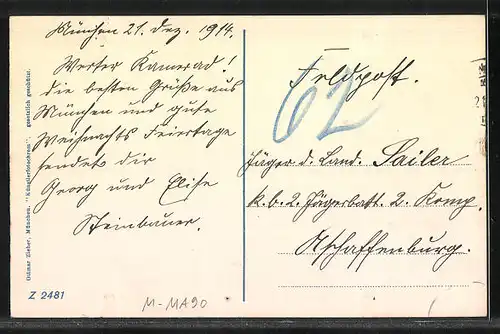 München 21. Dez. 1914.
Werter Kamerad!
die besten Grüße aus
München und gute
Weihnachts Feiertage
sendet dir
Georg und Elise
Steinbauer.
Feldpost.
62
Jäger d. Land. Sailer
k. b. 2. Jägerbatt. 2. Komp.
Aschaffenburg.
Ottmar Zieher, München. "Künstlerfernchrom": gesetzlich geschützt.
Z 2481
M-MA90